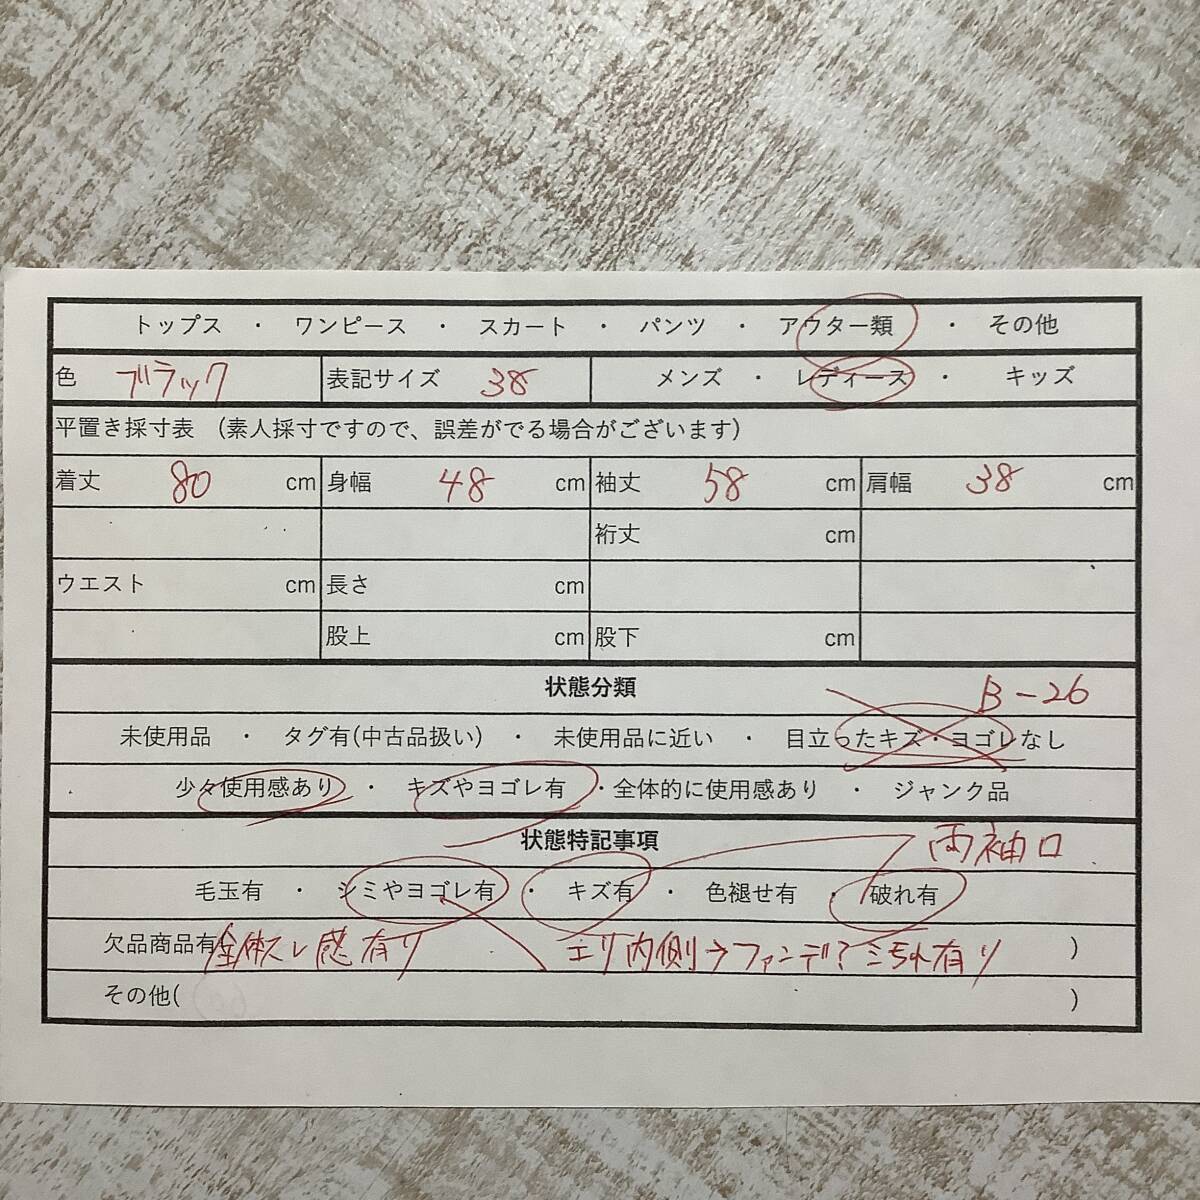 トップス ・ ワンピース ・ スカート ・ パンツ ・ アウター類 ・ その他
色 ブラック 表記サイズ 38 メンズ ・ レディース ・ キッズ
平置き採寸表 (素人採寸ですので、誤差がでる場合がございます)
着丈 80 cm 身幅 48 cm 袖丈 58 cm 肩幅 38 cm
裄丈 cm
ウエスト cm 長さ cm
股上 cm 股下 cm
状態分類 B-26
未使用品 ・ タグ有(中古品扱い) ・ 未使用品に近い ・ 目立ったキズ・ヨゴレなし
少々使用感あり ・ キズやヨゴレ有 ・全体的に使用感あり ・ ジャンク品
状態特記事項 両袖口
毛玉有 ・ シミやヨゴレ有 ・ キズ有 ・ 色褪せ有 ・ 破れ有
欠品商品有 全体スレ感有り エリ内側→ファンデ? 汚れ有り )
その他( )